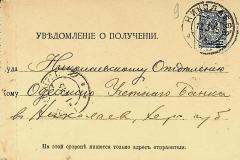 9
УВѢДОМЛЕНІЕ О ПОЛУЧЕНІИ.
уда Николаевскому Отдѣленію
Кому Одесскаго Учетнаго Банка
в. Николаевъ, Херс. губ
На этой сторонѣ пишется только адресъ отправителя.